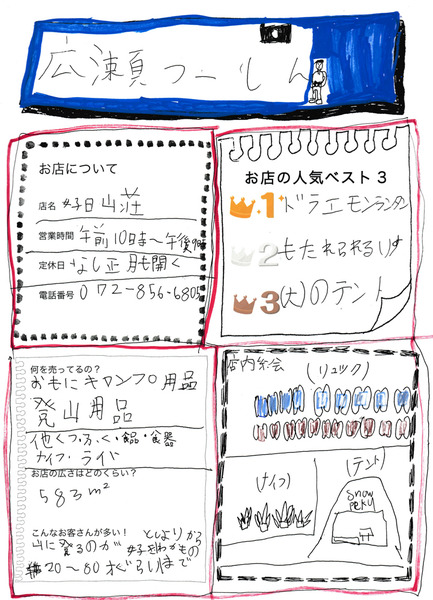 広瀬つーしん
お店について
店名 好日山荘
営業時間 午前10時～午後9時
定休日 なし正月も開く
電話番号 072-856-6805
お店の人気ベスト3
1 ドラえもんランタン
2 もたれられるいす
3 (大)のテント
何を売ってるの?
おもにキャンプ用品
登山用品
他くつ・ふく・食品・食器
ナイフ・ライト
お店の広さはどのくらい?
583m²
こんなお客さんが多い! としよりから
山に登るのが好きなわかもの
20〜80才ぐらいまで
店内絵
(リュック)
(ナイフ)
(テント)
snow
peku